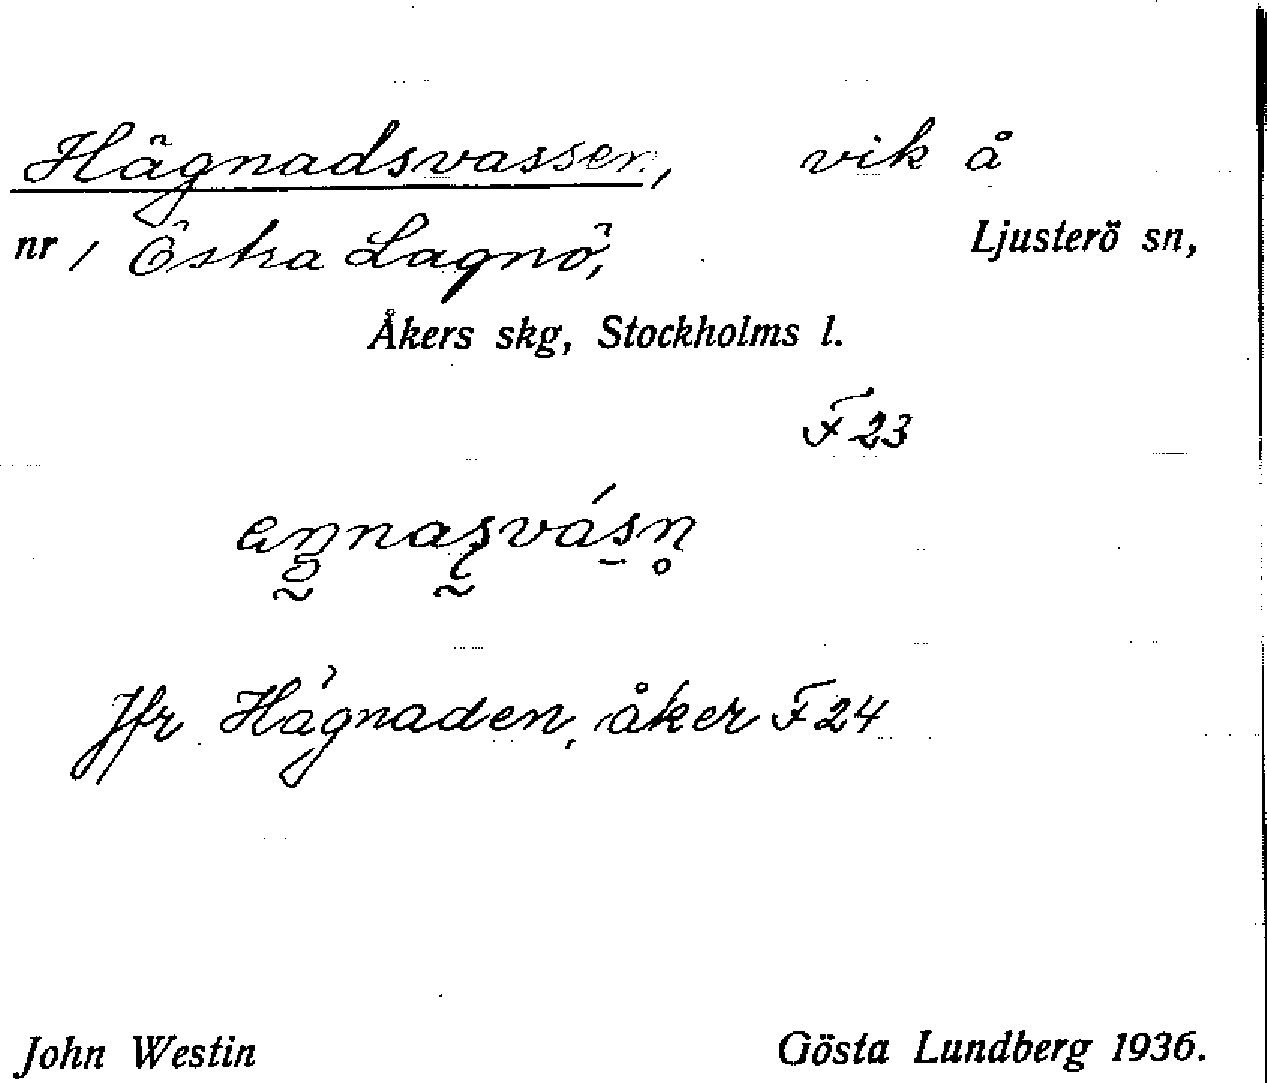 Hägnadsvassen, vik å
nr 1 Östra Lagnö, Ljusterö sn,
Åkers skg, Stockholms l.
F 23
Jfr Hägnaden, åker F 24
John Westin Gösta Lundberg 1936.